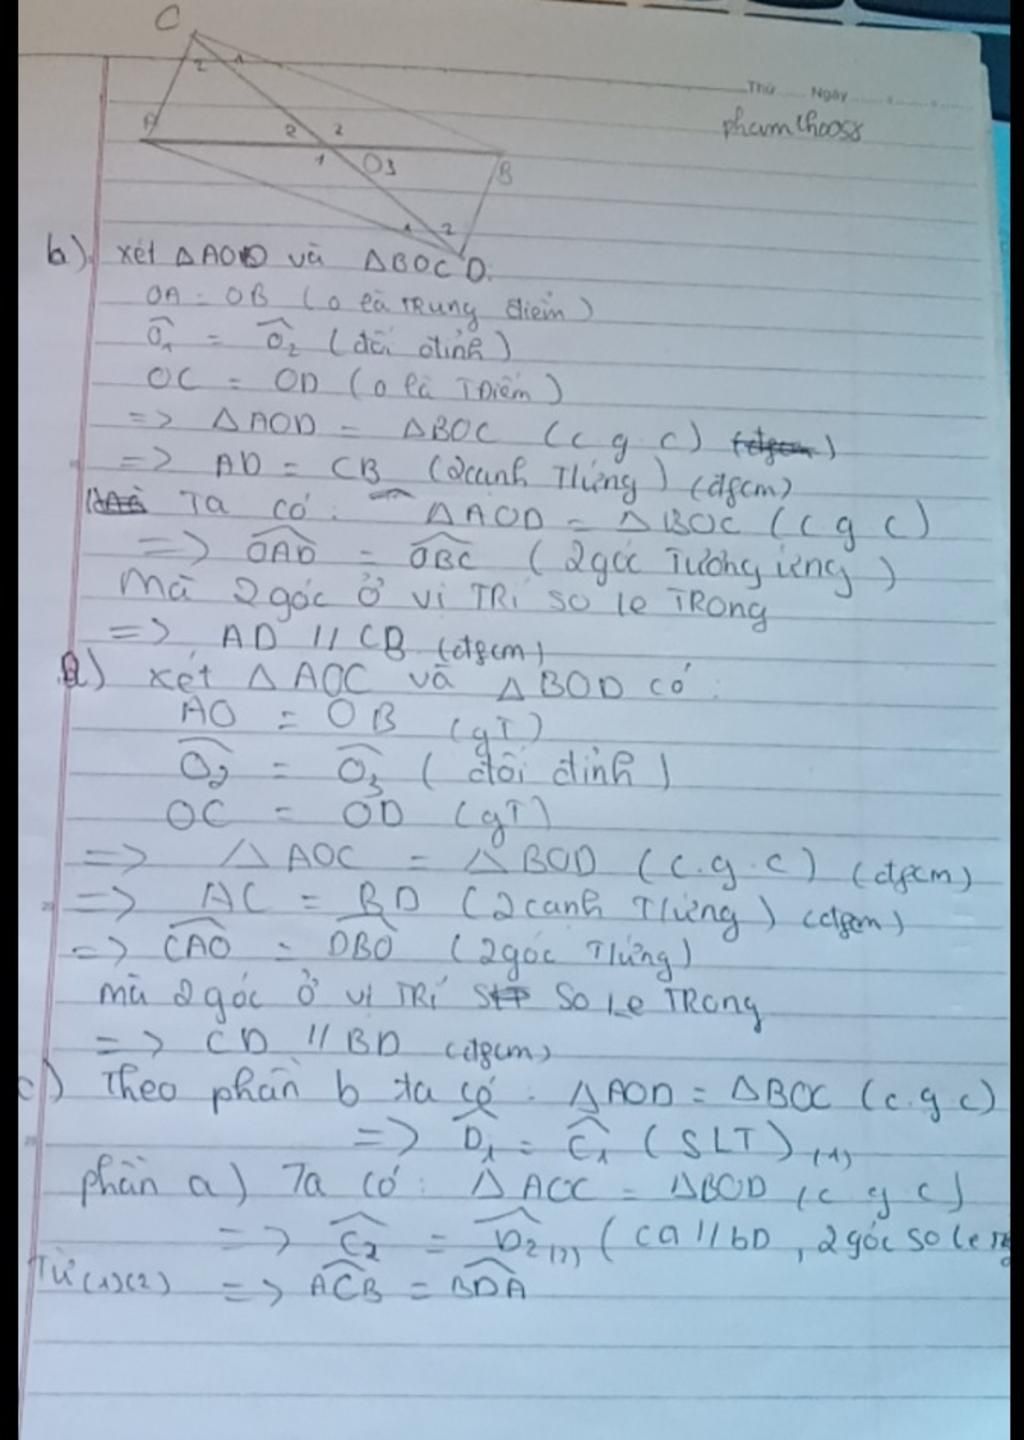 C
2 1
Thứ Ngày
phamthoo58
A
2 2
1 O3
B
1 2
b) xét ΔAOD và ΔBOC D.
OA = OB (O là TRung điểm)
Ô₁ = Ô₂ (đối đỉnh)
OC = OD (O là TĐiểm)
=> ΔAOD = ΔBOC (c g c)
=> AD = CB (2cạnh Tứng) (đpcm)
Ta có: ΔAOD = ΔBOC (c g c)
=> OAD = OBC (2góc Tương ứng)
Mà 2góc ở vị TRí so le TRong
=> AD // CB (đpcm)
a) xét ΔAOC và ΔBOD có:
AO = OB (gT)
Ô₂ = Ô₃ (đối đỉnh)
OC = OD (gT)
=> ΔAOC = ΔBOD (c.g.c) (đpcm)
=> AC = BD (2cạnh Tứng) (đpcm)
=> CAO = DBO (2góc Tứng)
mà 2góc ở vị TRí So Le TRong
=> CD // BD (đpcm)
c) Theo phần b ta có: ΔAOD = ΔBOC (c.g.c)
=> D̂₁ = Ĉ₁ (SLT) (1)
phần a) Ta có: ΔAOC = ΔBOD (c g c)
=> Ĉ₂ = D̂₂ (2) (ca//bD, 2góc so le
Từ (1)(2) => ACB = BDA